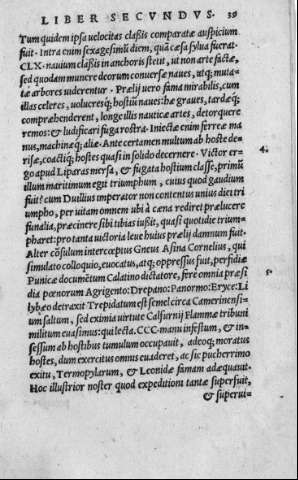 LIBER SECVNDVS. 39
Tum quidem ipsa velocitas classis comparatæ auspicium
fuit. Intra enim sexagesimũ diem, quã cæsa sylua fuerat,
CLX. nauium classis in anchoris stetit, ut non arte factæ,
sed quodam munere deorum conuersæ naues, utq; muta-
tæ arbores uiderentur. Prælij uero fama mirabilis, cum
illas celeres, uolucresq; hostiũ naues: hæ graues, tardæq;
compræhenderent, longe illis nauticæ artes, detorquere
remos: & ludificari fuga rostra. Iniectæ enim ferreæ ma
nus, machinæq; aliæ. Ante certamen multum ab hoste de-
risæ, coactiq; hostes quasi in solido decernere. Victor er-
go apud Liparas mersa, & fugata hostium classe, primũ
illum maritimum egit triumphum, cuius quod gaudium
fuit? cum Duilius imperator non contentus unius diei tri
umpho, per uitam omnem ubi à cæna rediret prælucere
funalia, præcinere sibi tibias iußit, quasi quotidie trium-
pharet: pro tanta uictoria leue huius prælij damnum fuit.
Alter cõsulum interceptus Gneus Asina Cornelius, qui
simulato colloquio, euocatus, atq; oppressus fuit, perfidiæ
Punicæ documẽtum Calatino dictatore, fere omnia præsi
dia pœnorum Agrigento: Drepano: Panormo: Eryce: Li
lybæo detraxit. Trepidatum est semel circa Camerinen-
sium saltum, sed eximia uirtute Calfurnij Flammæ tribuni
militum euasimus: qui lecta. CCC. manu infestum, & in-
sessum ab hostibus tumulum occupauit, adeoq; moratus
hostes, dum exercitus omnis euaderet, ac sic pucherrimo
exitu, Termopylarum, & Leonidæ famam adæquauit.
Hoc illustrior noster quod expeditioni tantæ superfuit,
& superui-
4.
5.